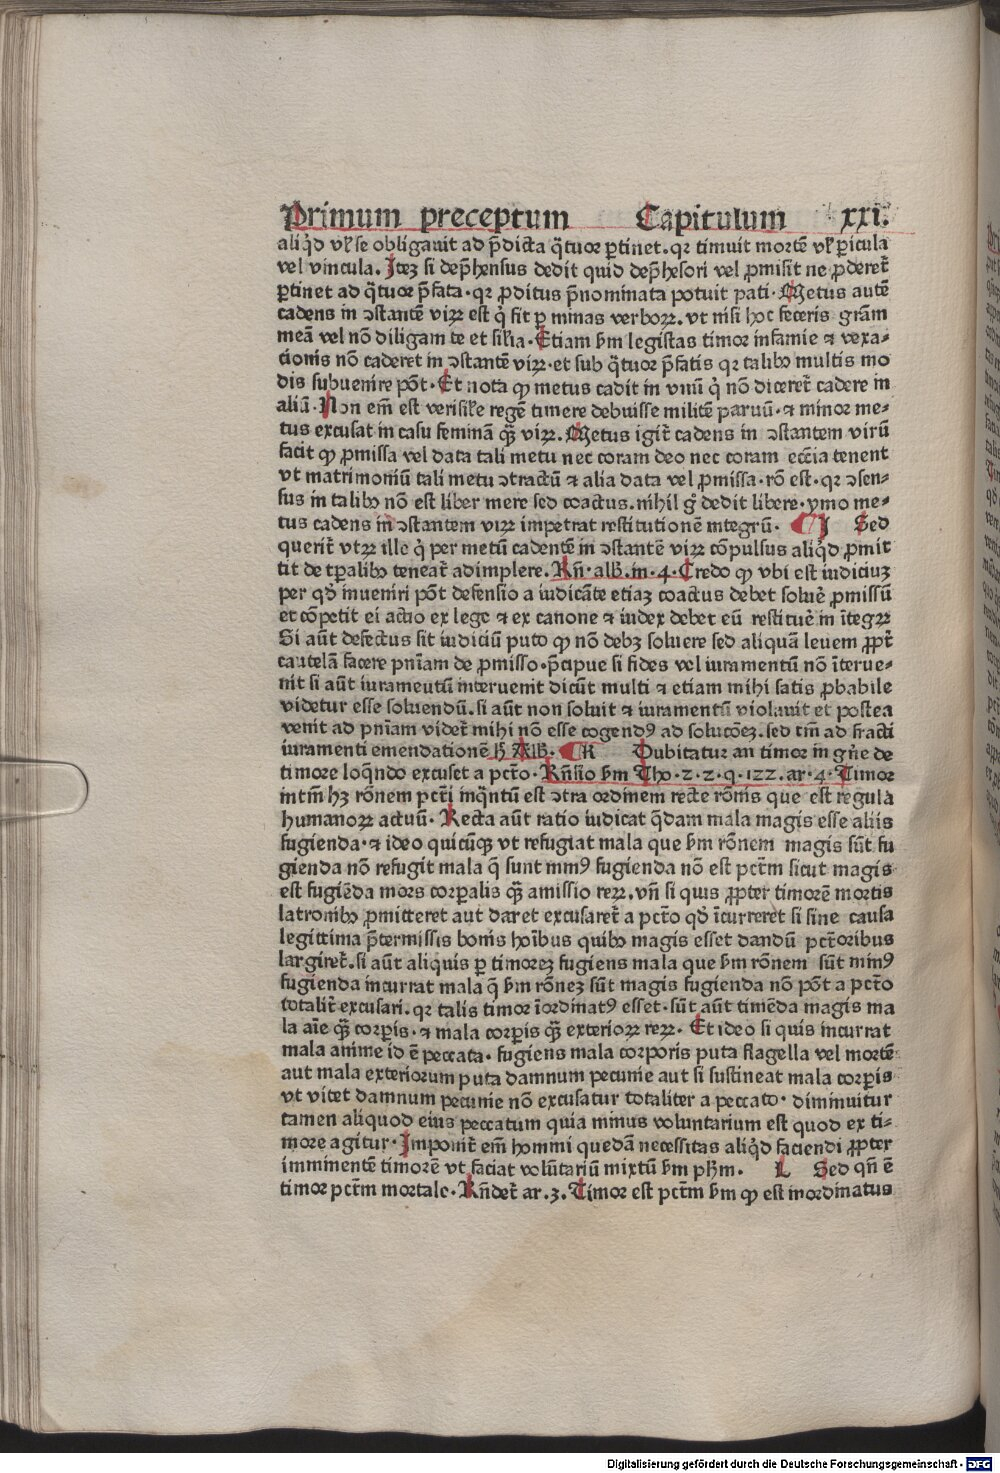 Primum preceptum Capitulum xxi.
aliq̇d vl̕ se obligauit ad p̄dicta q̄tuor ꝑtinet. qꝛ timuit mortē vl̕ ꝑicula
vel vincula. Itez si dep̄hensus dedit quid dep̄hesori vel ꝓmisit ne ꝓderet᷑
ꝑtinet ad q̄tuor p̄fata. qꝛ ꝓditus p̄nominata potuit pati. Metus autē
cadens in ↄstantē viꝝ est q̇ fit ꝑ minas verboꝝ. vt nisi hoc feceris grām
meā vel nō diligam te et sil̕ia. Etiam ẜm legistas timor infamie ⁊ vexa⸗
tionis nō caderet in ↄstantē viꝝ. et sub q̄tuor p̄fatis qꝛ talibꝰ multis mo
dis subuenire pōt. Et nota ꝙ metus cadit in vnū q̇ nō diceret᷑ cadere in
aliū. Non em̄ est verisil̕e regē timere debuisse militē paruū. ⁊ minor me⸗
tus excusat in casu feminā q̄ꝫ viꝝ. Metus igit᷑ cadens in ↄstantem virū
facit ꝙ ꝓmissa vel data tali metu nec coram deo nec coram ecc̄ia tenent
vt matrimoniū tali metu ↄtractū ⁊ alia data vel ꝓmissa. rō est. qꝛ ↄsen⸗
sus in talibꝰ nō est liber mere sed coactus. nihil gͦ dedit libere. ymo me⸗
tus cadens in ↄstantem viꝝ impetrat restitutionē integrū. ¶ I Sed
querit᷑ vtꝝ ille q̇ per metū cadentē in ↄstantē viꝝ cōpulsus aliq̇d ꝓmit
tit de tꝑalibꝰ teneat᷑ adimplere. Rn̄. alb̄. in. 4. Credo ꝙ vbi est iudiciuꝫ
per qd̕ inueniri pōt defensio a iudicāte etiaꝫ coactus debet soluē ꝓmissū
et cōpetit ei actio ex lege ⁊ ex canone ⁊ iudex debet eū restituē in ītegꝝ
Si aūt defectus sit iudiciū puto ꝙ nō debꝫ soluere sed aliquā leuem ꝓpt᷑
cautelā facere pn̄iam de ꝓmisso. p̄cipue si fides vel iuramentū nō īterue⸗
nit si aūt iurameutū interuenit dicūt multi ⁊ etiam mihi satis ꝓbabile
videtur esse soluendū. si aūt non soluit ⁊ iuramentū violauit et postea
venit ad pn̄iam videt᷑ mihi nō esse cogendꝰ ad solucōeꝫ. sed tm̄ ad fracti
iuramenti emendationē h̄ Alb̄. ¶ K Dubitatur an timor in gn̄e de
timore loq̄ndo excuset a pct̄o. Rn̄sio ẜm Tho. 2. 2. q. 122. ar. 4. Timor
intm̄ hꝫ rōnem pct̄i inq̄ntū est ↄtra ordinem recte rōnis que est regula
humanoꝝ actuū. Recta aūt ratio iudicat q̄dam mala magis esse aliis
fugienda. ⁊ ideo quicūqꝫ vt refugiat mala que ẜm rōnem magis sūt fu
gienda nō refugit mala q̄ sunt minꝰ fugienda nō est pct̄m sicut magis
est fugiēda mors corꝑalis q̄ꝫ amissio reꝝ. vn̄ si quis ꝓpter timorē mortis
latronibꝰ ꝓmitteret aut daret excusaret᷑ a pct̄o qd̕ īcurreret si sine causa
legittima p̄termissis bonis hoībus quibꝰ magis esset dandū pct̄oribus
largiret᷑. si aūt aliquis ꝑ timoreꝫ fugiens mala que ẜm rōnem sūt minꝰ
fugienda incurrat mala q̄ ẜm rōneꝫ sūt magis fugienda nō pōt a pct̄o
totalit᷑ excusari. qꝛ talis timor īordinatꝰ esset. sūt aūt timēda magis ma
la aīe q̄ꝫ corꝑis. ⁊ mala corꝑis q̄ꝫ exterioꝝ reꝝ. Et ideo si quis incurrat
mala anime id ē peccata. fugiens mala corporis puta flagella vel mortē
aut mala exteriorum puta damnum pecunie aut si sustineat mala corꝑis
vt vitet damnum pecunie nō excusatur totaliter a peccato. diminuitur
tamen aliquod eius peccatum quia minus voluntarium est quod ex ti⸗
more agitur. Imponit᷑ em̄ homini quedā necessitas aliq̇d faciendi ꝓpter
imminentē timorē vt faciat volūtariū mixtū ẜm ph̄m. L Sed qn̄ ē
timor pct̄m mortale. Rn̄det᷑ ar. 3. Timor est pct̄m ẜm ꝙ est inordinatus
Digitalisierung gefördert durch die Deutsche Forschungsgemeinschaft - DFG